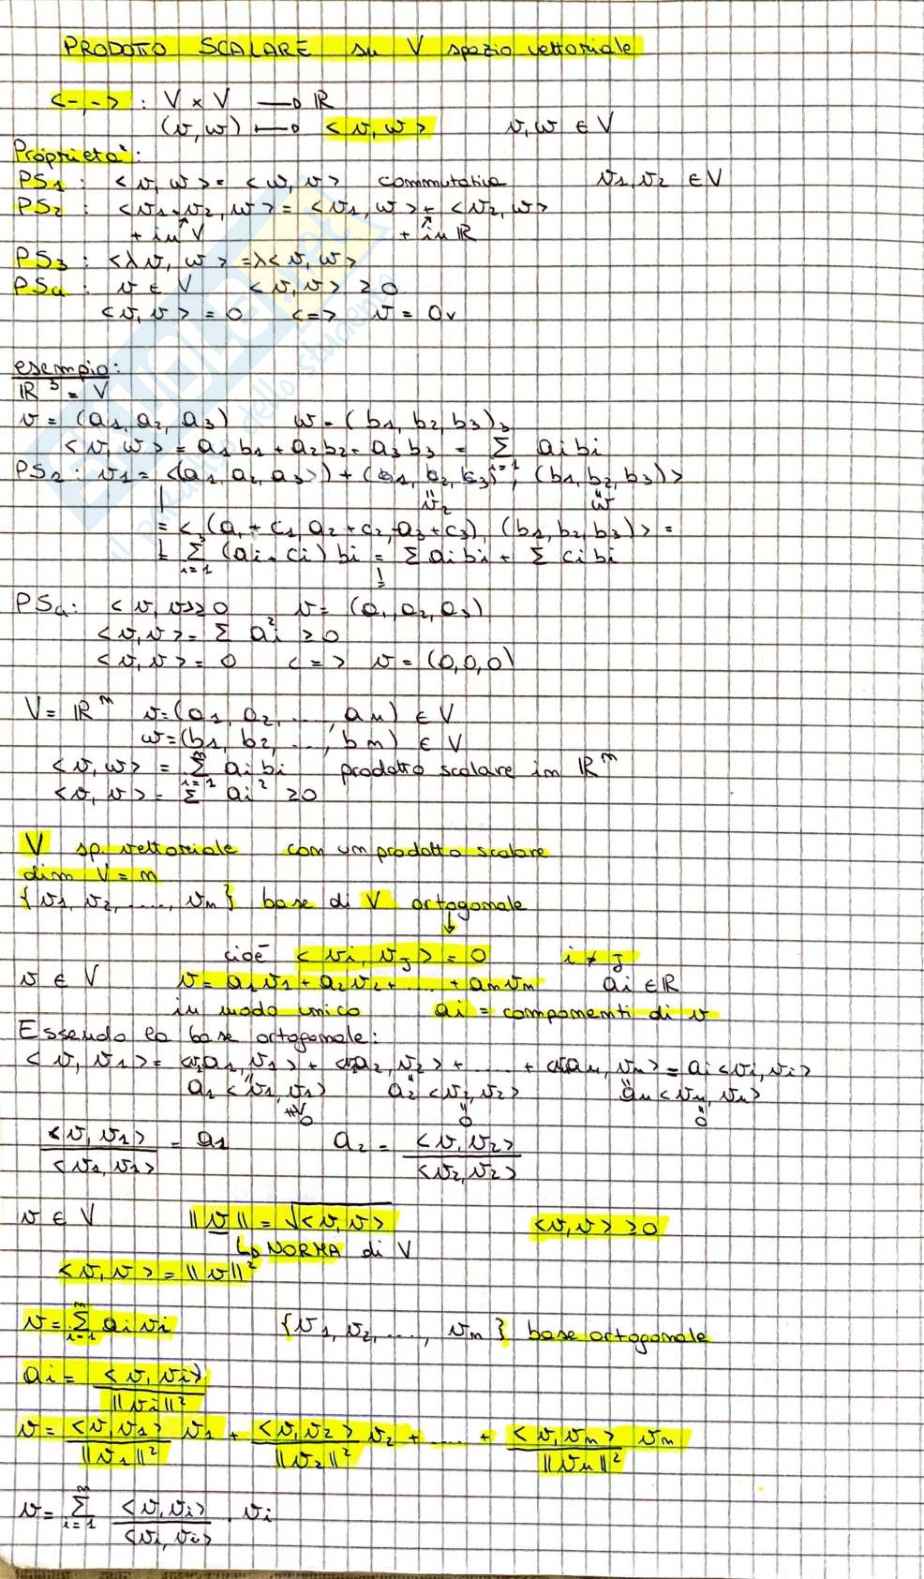 PRODOTTO SCALARE su V spazio vettoriale
<-,-> : V × V → ℝ
(v,w) ↦ <v,w> v,w ∈ V
Proprietà:
PS1 : <v,w> = <w,v> commutativa v1,v2 ∈ V
PS2 : <v1+v2,w> = <v1,w> + <v2,w>
+ in V + in ℝ
PS3 : <λv,w> = λ<v,w>
PS4 : v ∈ V <v,v> ≥ 0
<v,v> = 0 <=> v = 0v
esempio:
ℝ³ = V
v = (a1, a2, a3) w = (b1, b2, b3)
<v,w> = a1b1 + a2b2 + a3b3 = 3 Σ i=1 aibi
PS2 : v1 = <(a1, a2, a3) + (c1, c2, c3), (b1, b2, b3)>
" v2 " w
= <(a1+c1, a2+c2, a3+c3), (b1,b2,b3)> =
= 3 Σ i=1 (ai+ci) bi = Σ aibi + Σ cibi
!
PS4: <v,v> ≥ 0 v = (a1, a2, a3)
<v,v> = Σ ai² ≥ 0
<v,v> = 0 <=> v = (0,0,0)
V = ℝⁿ v = (a1, a2, ..., an) ∈ V
w = (b1, b2, ..., bn) ∈ V
<v,w> = n Σ i=1 aibi prodotto scalare in ℝⁿ
<v,v> = Σ ai² ≥ 0
V sp. vettoriale con un prodotto scalare
dim V = n
{v1, v2, ...., vn} base di V ortogonale
↓
cioè <vi, vj> = 0 i ≠ j
v ∈ V v = a1v1 + a2v2 + .... + anvn ai ∈ ℝ
in modo unico ai = componenti di v
Essendo la base ortogonale:
<v, v1> = <v1a1, v1> + <v2a2, v2> + ..... + <vnan, vn> = ai<vi,vi>
a1<v1,v1> a2<v2,v2> an<vn,vn>
≠0 " 0 " 0
<v,v1> / <v1,v1> = a1 a2 = <v,v2> / <v2,v2>
v ∈ V ||v|| = √<v,v> <v,v> ≥ 0
↳ NORMA di V
<v,v> = ||v||²
v = n Σ i=1 aivi {v1, v2, ...., vn} base ortogonale
ai = <v,vi> / ||vi||²
v = <v,v1> / ||v1||² v1 + <v,v2> / ||v2||² v2 + .... + <v,vn> / ||vn||² vn
v = n Σ i=1 <v,vi> / <vi,vi> · vi